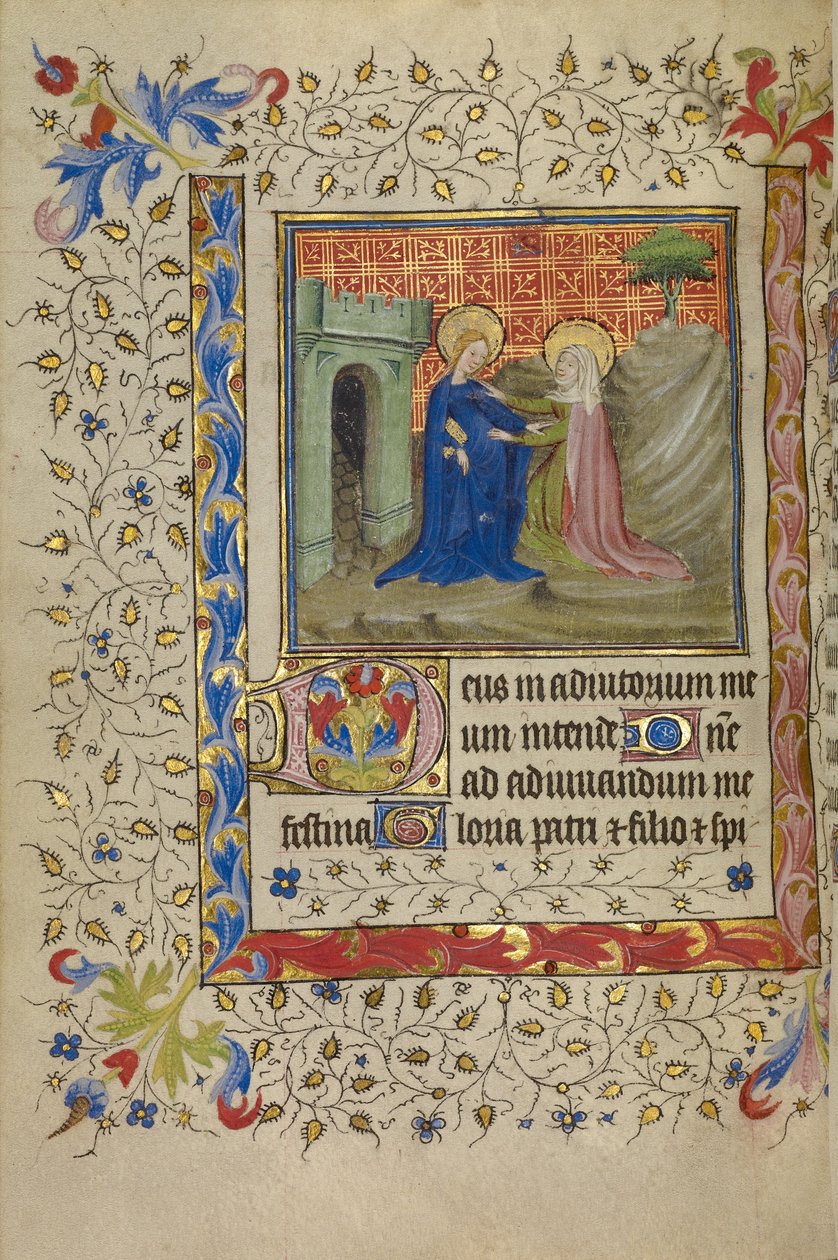 Deus in adiutorium me
um intende Dne
ad adiuuandum me
festina Gloria patri ⁊ filio ⁊ spi